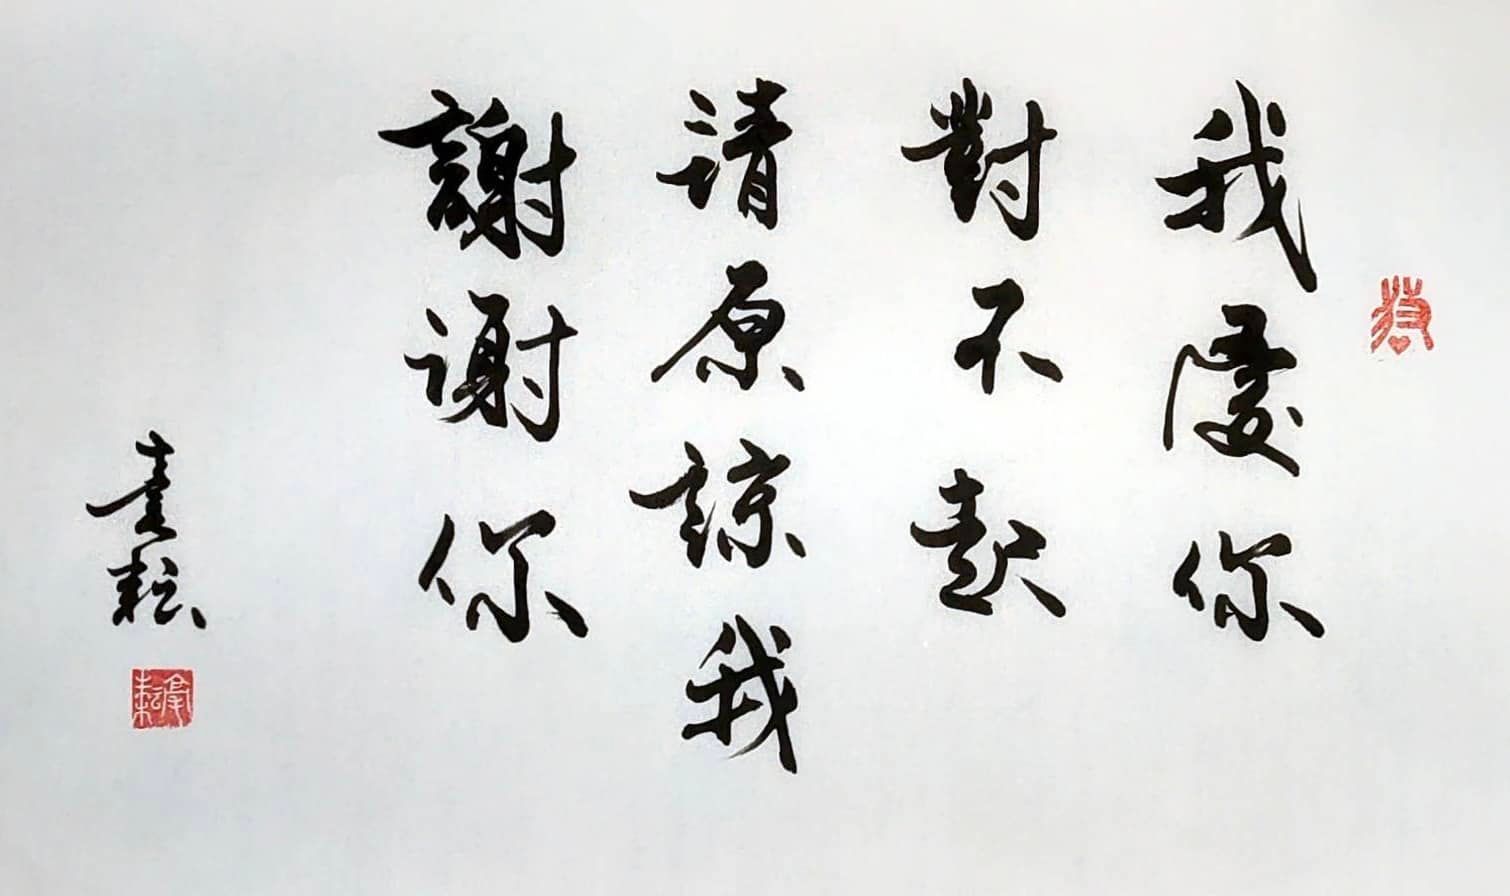 我愛你
對不起
請原諒我
謝谢你
素耘